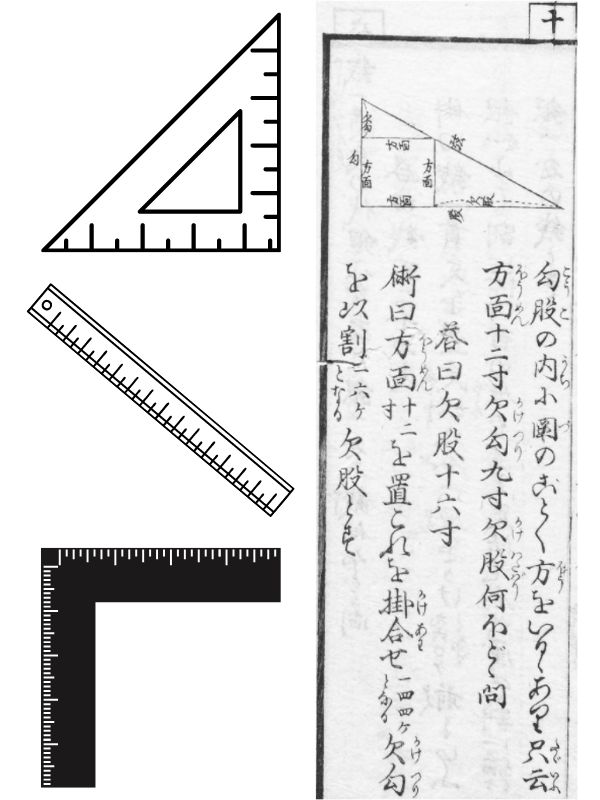 十
欠勾
勾
方面
方面
方面
方面
弦
欠股
股
勾股の内小圖のごとく方をいるゝあり只云
方面十二寸欠勾九寸欠股何ほどゝ問
答曰欠股十六寸
術曰方面十二寸を置これを掛合せ一四四ケとなる欠勾
を以割一六ケとなる欠股とす